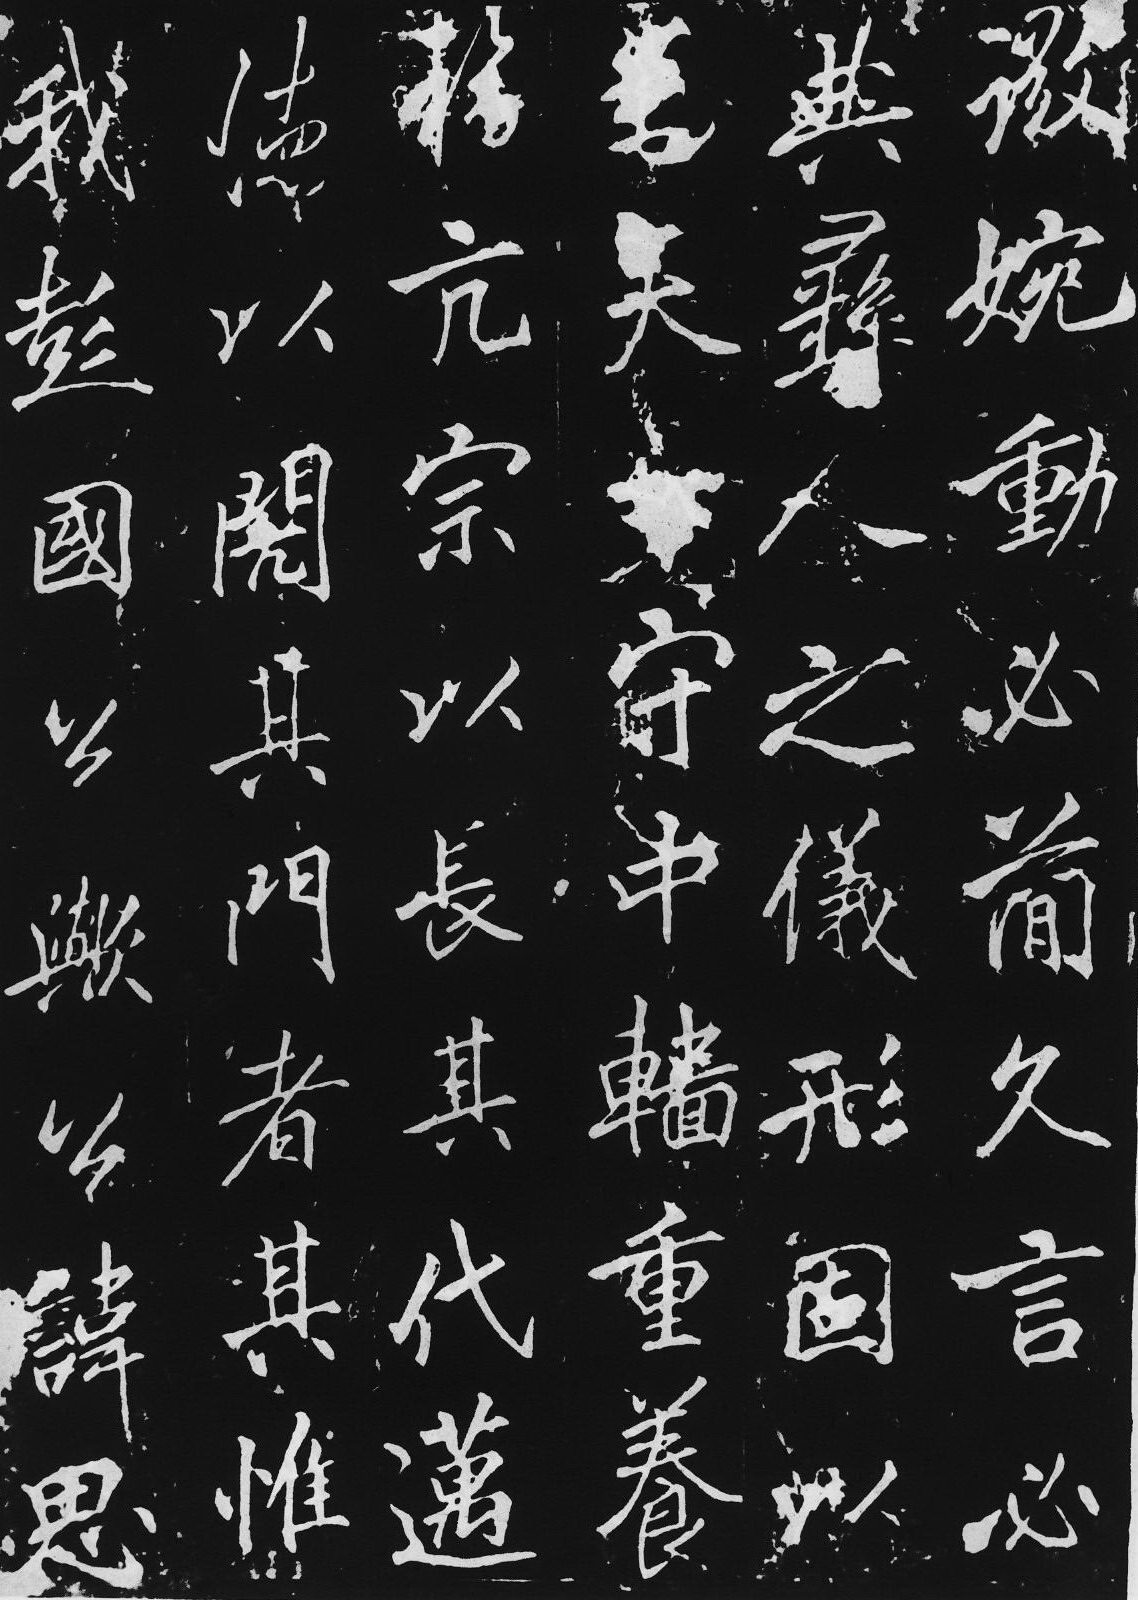 微婉動必簡久言必
典彝人之儀形固以
矣守中轖重養
亢宗以長其代邁
德以閱其門者其惟
我彭國公歟公諱思